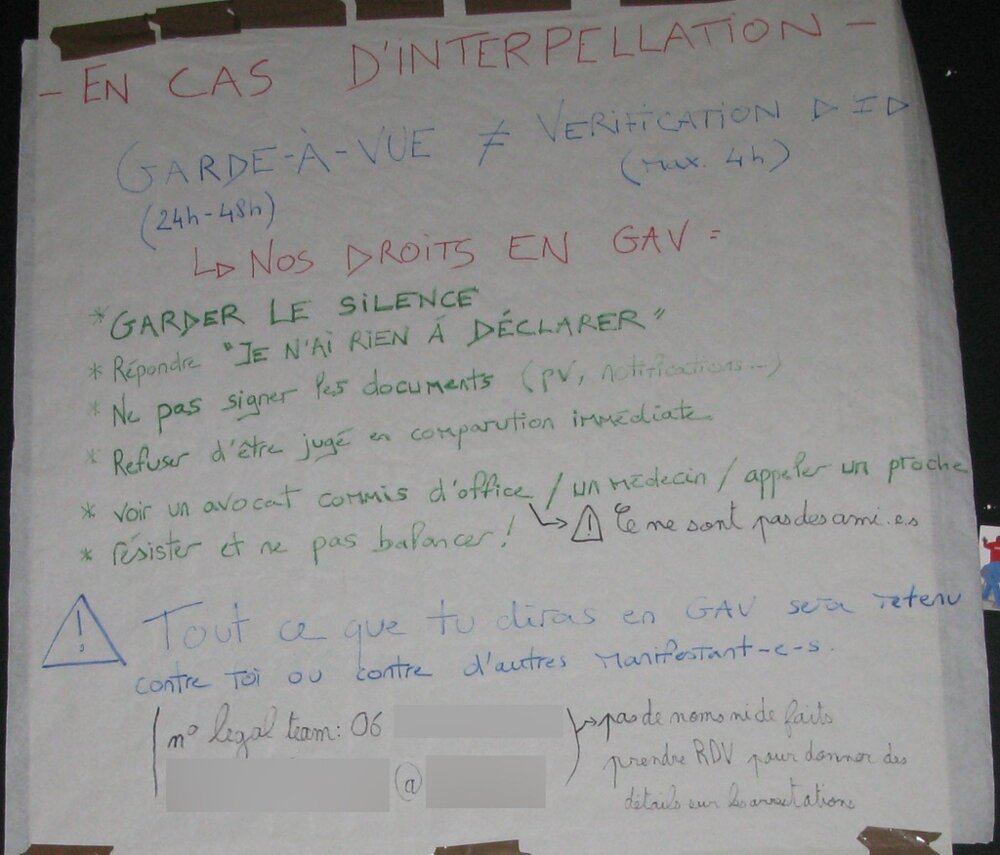 - EN CAS D'INTERPELLATION -
GARDE-À-VUE ≠ VERIFICATION D ID
(24h-48h) (max. 4h)
↳ NOS DROITS EN GAV =
* GARDER LE SILENCE
* Répondre "JE N'AI RIEN À DÉCLARER"
* Ne pas signer les documents (pv, notifications...)
* Refuser d'être jugé en comparution immédiate
* voir un avocat commis d'office / un médecin / appeler un proche
↳ ⚠ Ce ne sont pas des ami.e.s
* résister et ne pas balancer !
⚠ Tout ce que tu diras en GAV sera retenu
contre toi ou contre d'autres manifestant-e-s.
n° legal team: 06
@
→ pas de noms ni de faits
prendre RDV pour donner des
détails sur les arrestations